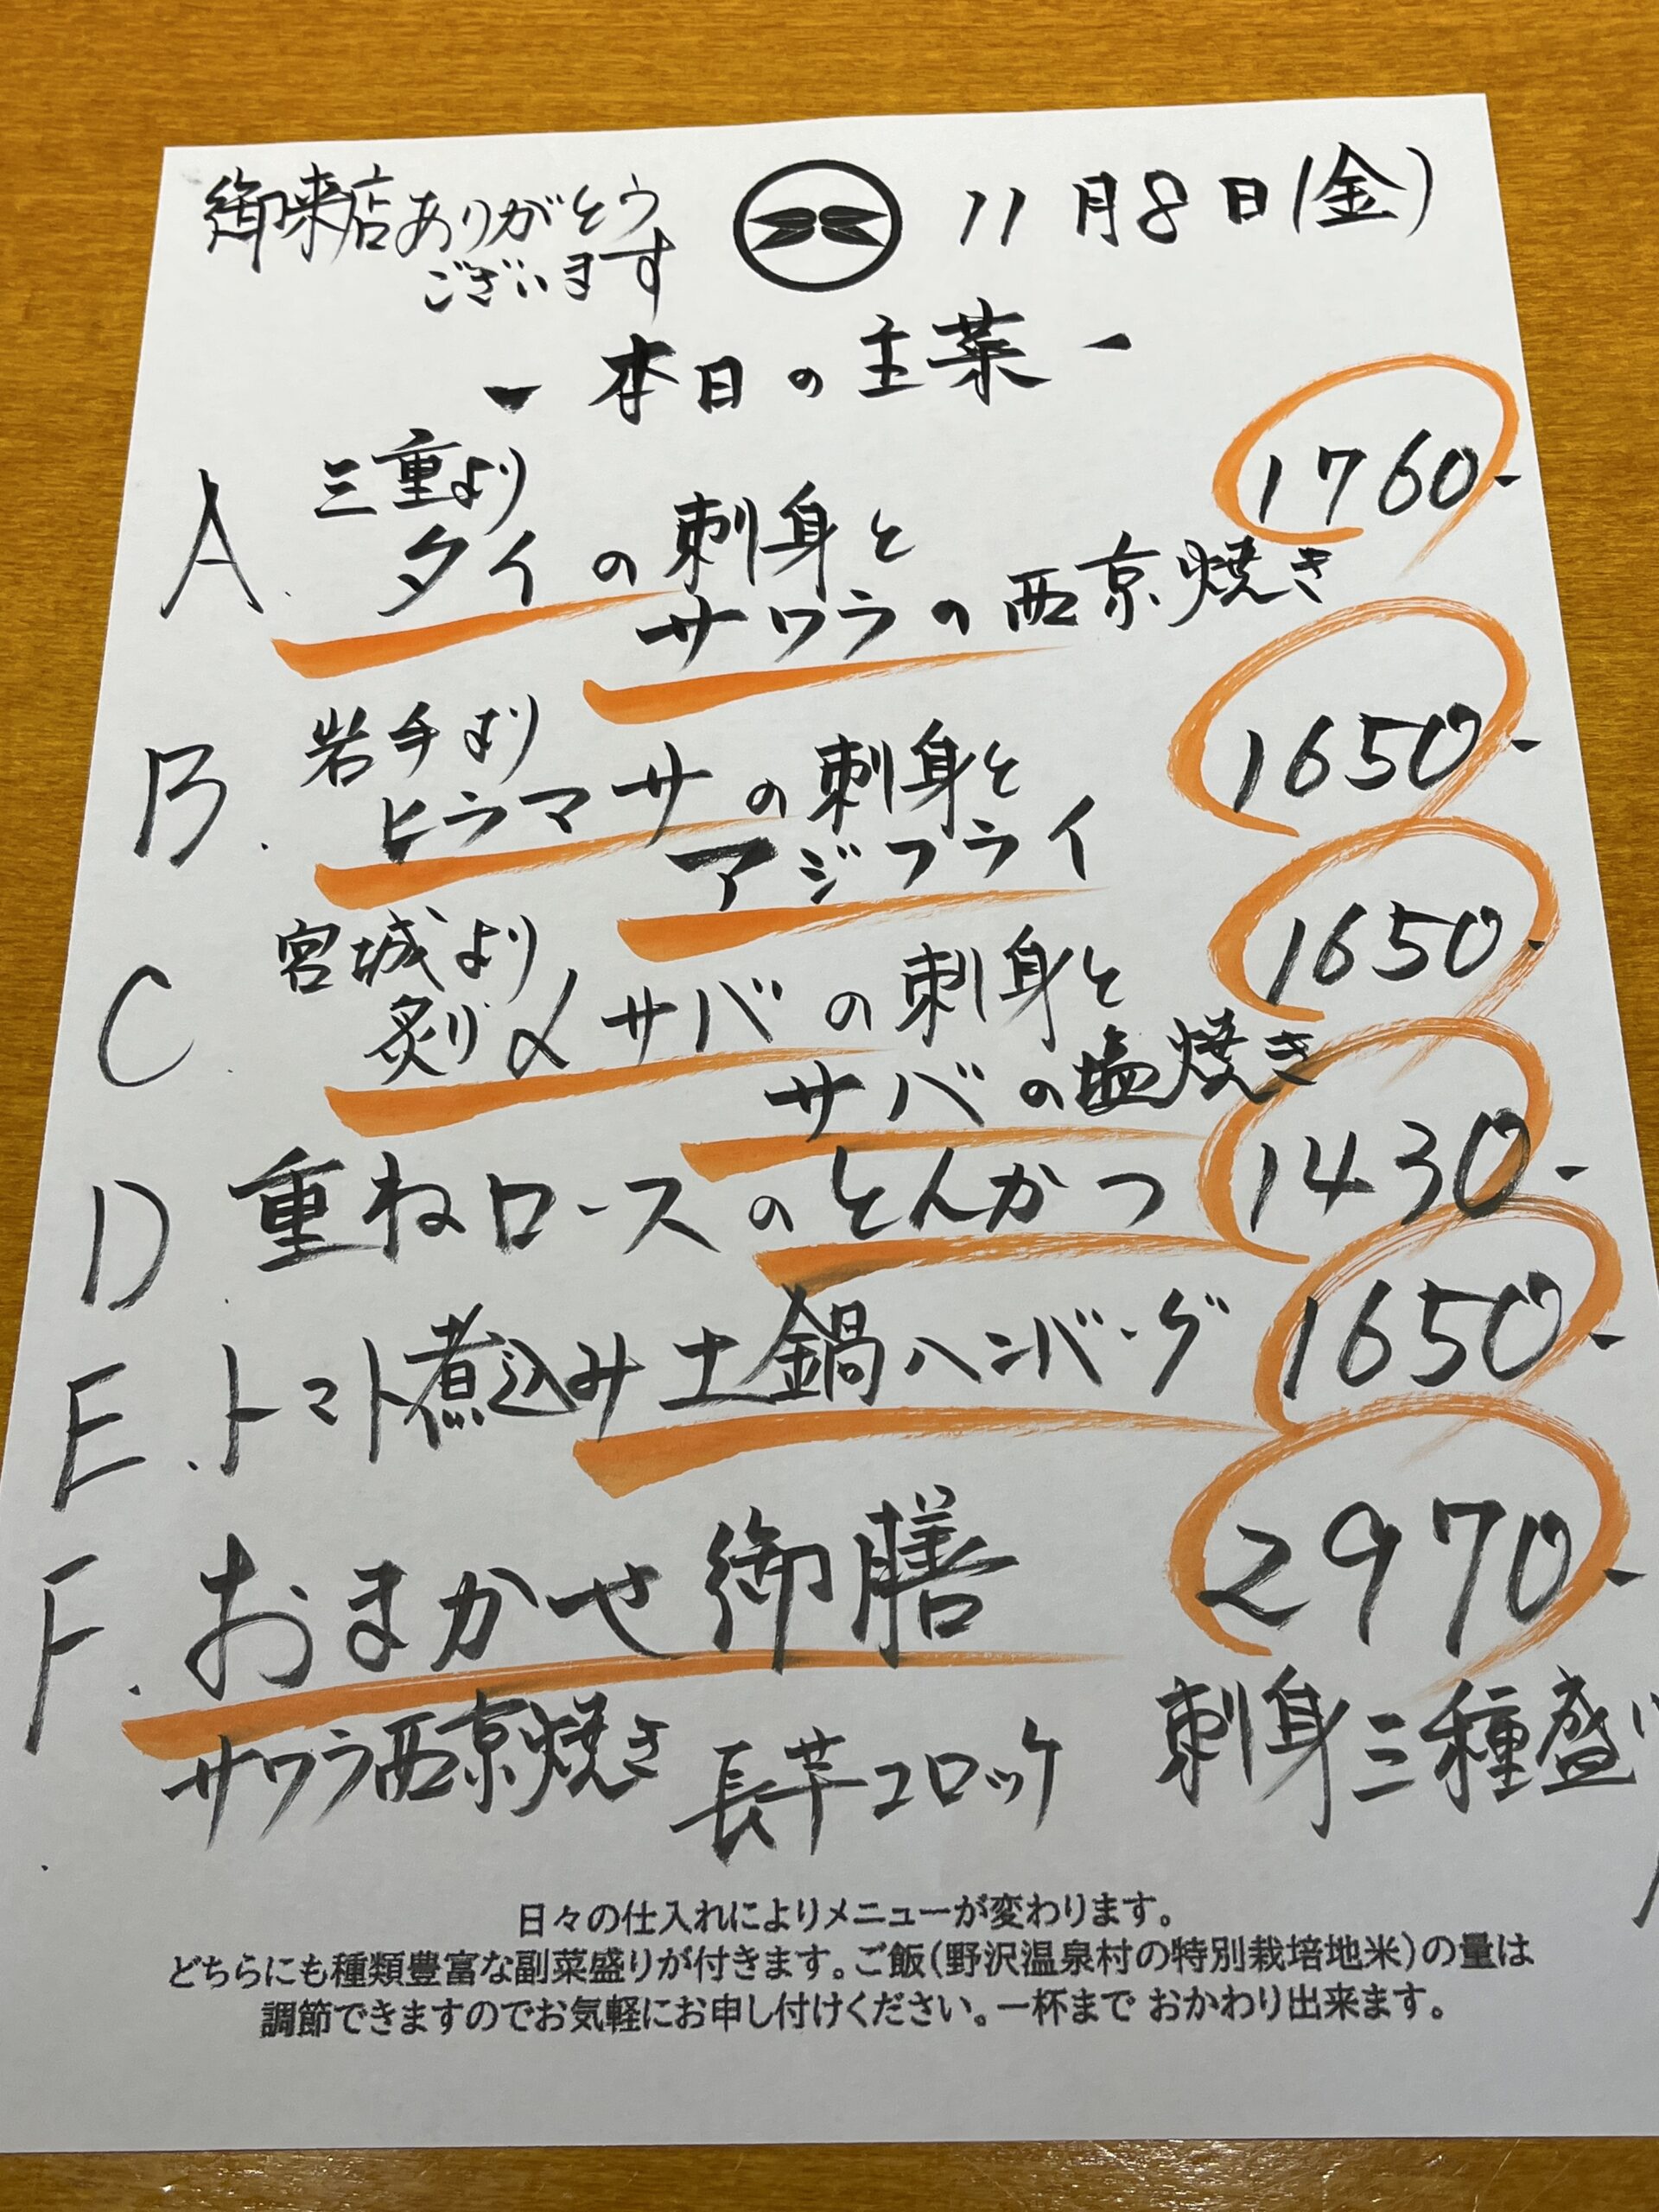 御来店ありがとう
ございます
11月8日(金)
ー本日の主菜ー
A. 三重より
タイの刺身と
サワラの西京焼き
1760-
B. 岩手より
ヒラマサの刺身と
アジフライ
1650-
C. 宮城より
炙り〆サバの刺身と
サバの塩焼き
1650-
D. 重ねロースのとんかつ 1430-
E. トマト煮込み土鍋ハンバーグ 1650-
F. おまかせ御膳 2970-
サワラ西京焼き 長芋コロッケ 刺身三種盛り
日々の仕入れによりメニューが変わります。
どちらにも種類豊富な副菜盛りが付きます。ご飯(野沢温泉村の特別栽培地米)の量は
調節できますのでお気軽にお申し付けください。一杯まで おかわり出来ます。